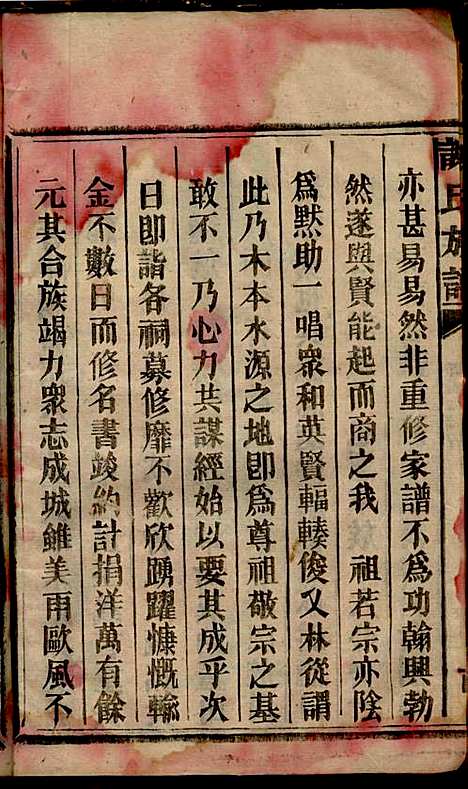 氏族譜
亦甚易易然非重修家譜不爲功翰興勃
然遂與賢能起而商之我　祖若宗亦陰
爲默助一唱衆和英賢輻輳俊又林從謂
此乃木本水源之地即爲尊祖敬宗之基
敢不一乃心力共謀經始以要其成乎次
日即詣各祠募修靡不歡欣踴躍慷慨輸
金不數日而修名書竣約計捐洋萬有餘
元其合族竭力衆志成城雖美雨歐風不